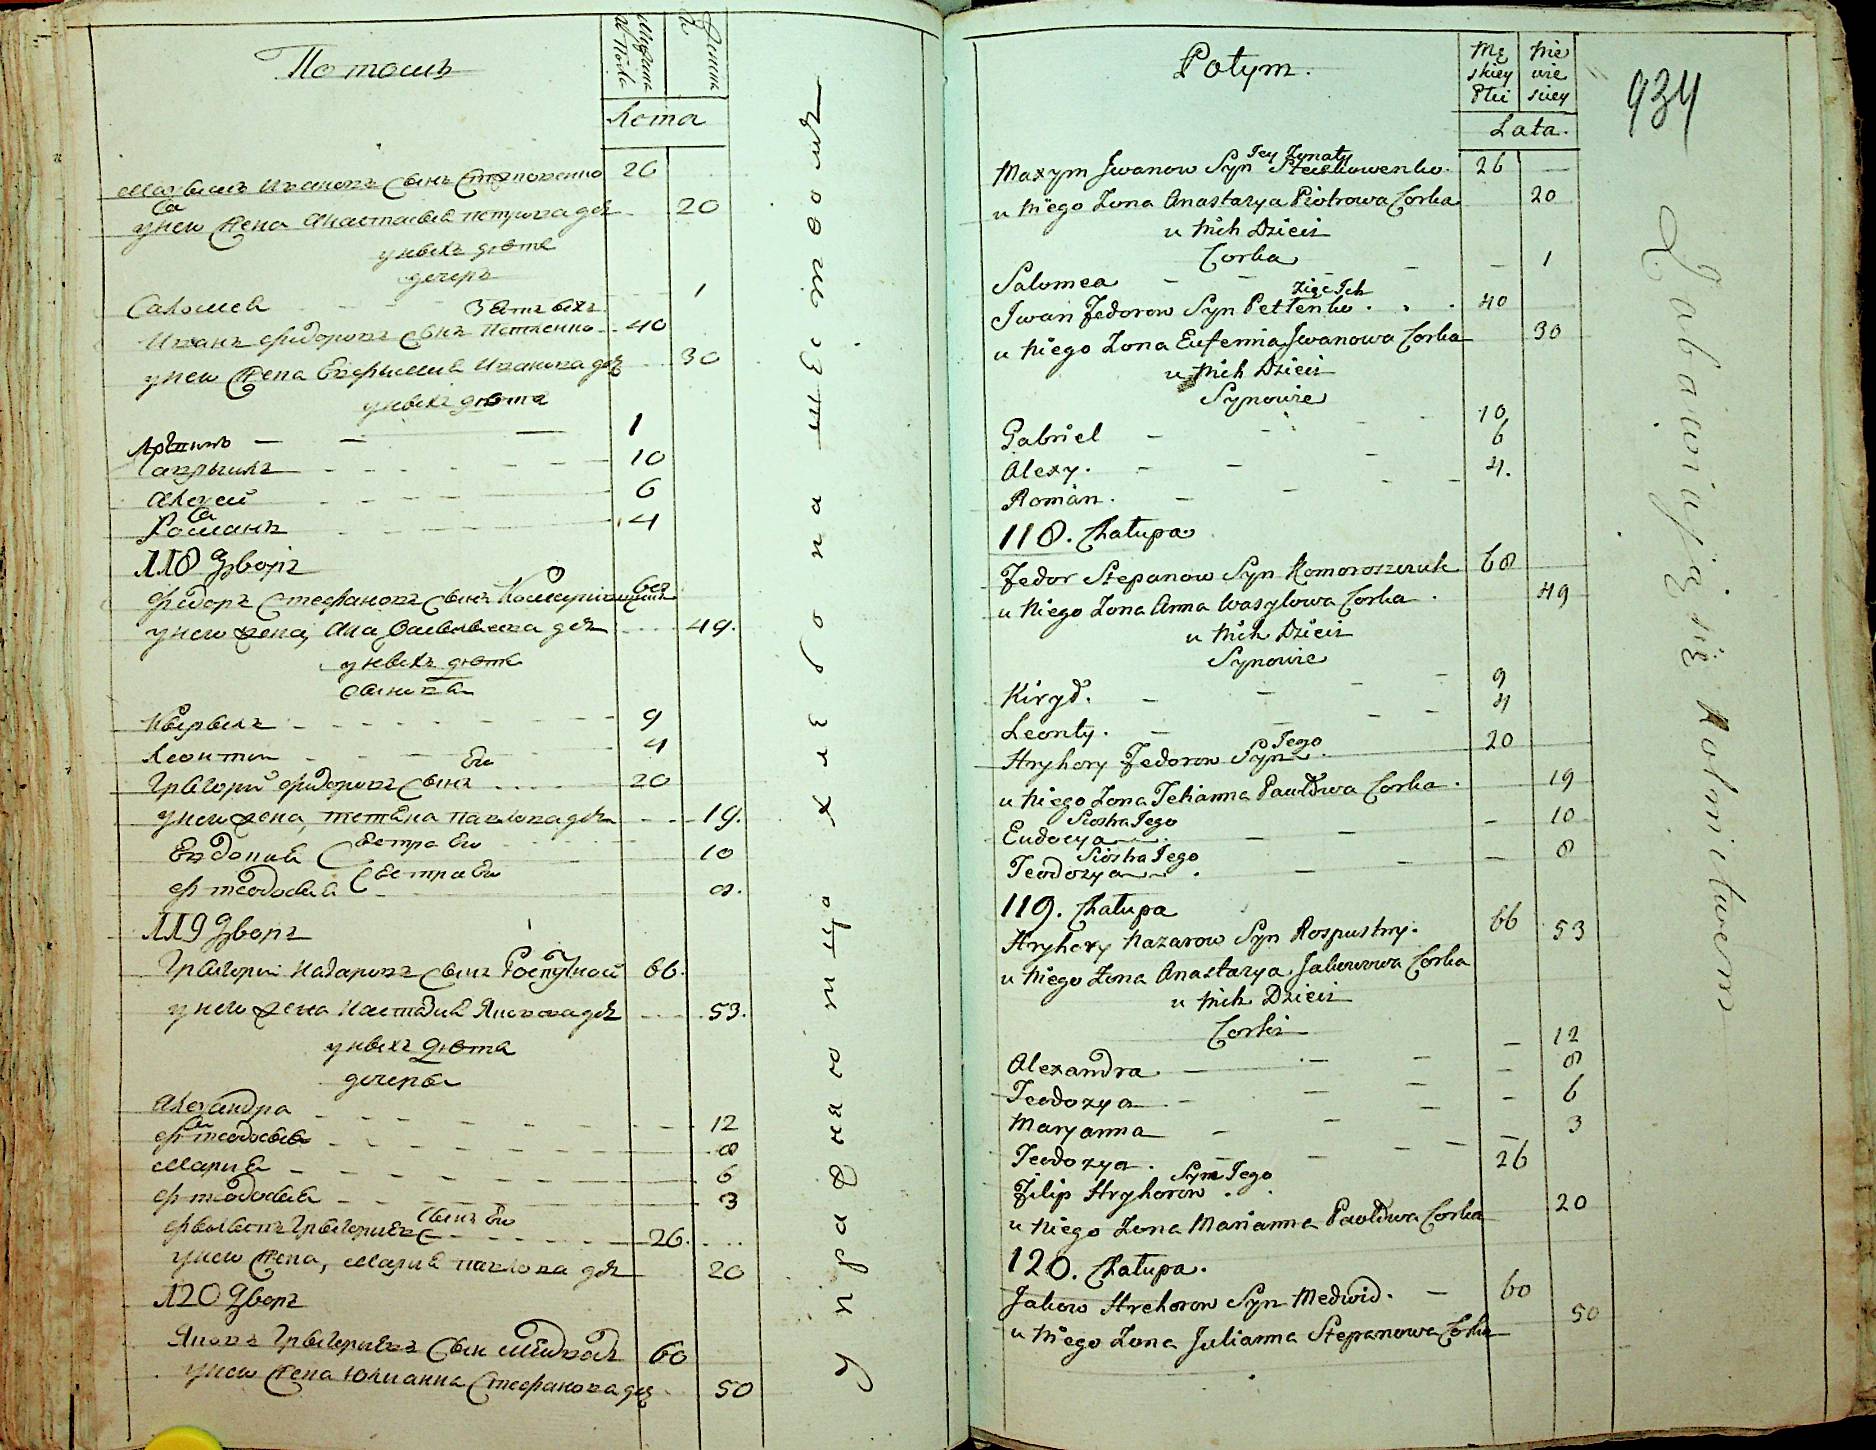 Потомъ
Мужеска Пола
Лета
Максимъ Ивановъ сынъ 26
у него жена Анастасия Петрова доч 20
у нихъ дѣти
дочерь
Саломея 1
Зять ихъ
Иванъ Фіодоровъ сынъ Петленко 40
у него жена Евфимия Иванова доч 30
у нихъ дѣти
1
Гавриилъ 10
Алексей 6
Романъ 4
118 Дворъ
Фіодоръ Стефановъ сынъ 68
у него жена Анна Васильева доч 49.
у нихъ дѣти
сыновья
Кирилъ 9
Леонтий 4
Григорий Фіодоровъ сынъ Его 20
у него жена, Тетяна Павлова доч 19.
Евдокия Сестра Ею 10
Фтеодосия Сестра Ею 8.
119 Дворъ
Григорий Назаровъ сынъ Роспусной 66.
у него жена Настазия Якова доч 53.
у нихъ дѣти
дочеры
Александра 12
Фтеодосия 8
Мария 6
Фтеодосия 3
Филипъ Григориевъ сынъ Ею 26.
у него жена, Мария Павлова доч 20
120 Дворъ
Яковъ Григориевъ сын Медведь 60
у него жена Юлианна Стефанова доч 50
упражняются хлебопашеством
Potym.
Mę
skiey
Płci
Nie
wie
sciey
Lata.
934
Maxym Jwanow Syn Stechowenko. Jey Zynaty 26
u Niego Zona Anastazya Piotrowa Corka 20
u Nich Dzieci
Corka
Salomea 1
Zięć Ich
Jwan Fedorow Syn Petlenko. 40
u Niego Zona Eufemia Jwanowa Corka 30
u Nich Dzieci
Synowie
Gabriel 10
Alexy. 6
Roman. 4.
118. Chałupa
Fedor Stepanow Syn Komoroszczuk 68
u Niego Zona Anna Wasylowa Corka. 49
u Nich Dzieci
Synowie
Kirył. 9
Leonty. 4
Hryhory Fedorow Syn Jego 20
u Niego Zona Tetianna Pawłowa Corka. 19
Eudocya Siostra Jego 10
Teodozya Siostra Jego 8
119. Chałupa
Hryhory Nazarow Syn Rospustny. 66
u Niego Zona Anastazya Jakowowa Corka 53
u Nich Dzieci
Corki
Alexandra 12
Teodozya 8
Maryanna 6
Teodozya. 3
Filip Hryhorow Syn Jego 26
u Niego Zona Marianna Pawłowa Corka 20
120. Chałupa.
Jakow Hrehorow Syn Medwid. 60
u Niego Zona Julianna Stepanowa Corka 50
Zabawiają się Rolnictwem